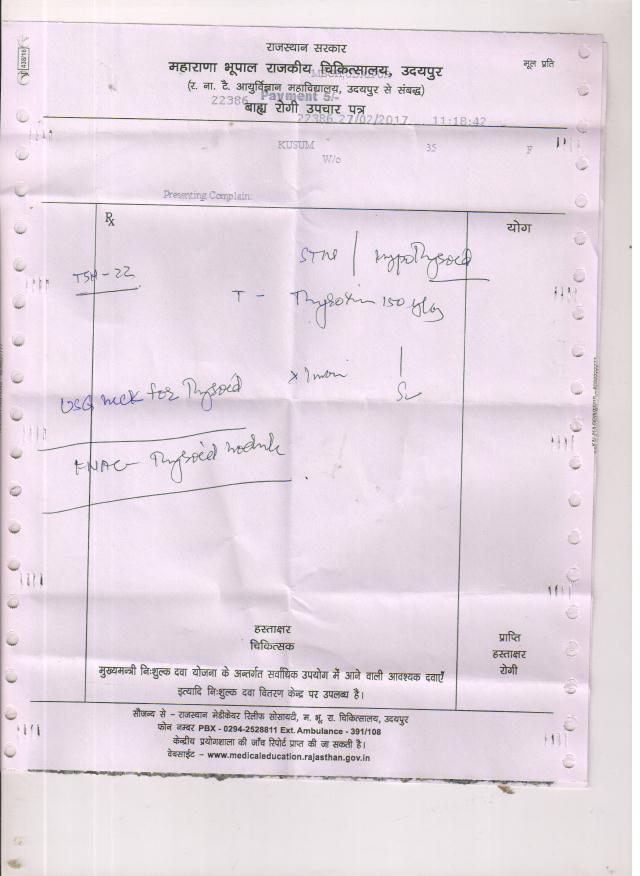 राजस्थान सरकार
महाराणा भूपाल राजकीय चिकित्सालय, उदयपुर
मूल प्रति
(र. ना. टै. आयुर्विज्ञान महाविद्यालय, उदयपुर से संबद्ध)
22386 Payment 5/-
बाह्य रोगी उपचार पत्र
22386 27/02/2017 11:18:42
KUSUM 35 F
W/o
Presenting Complain:
Rx
योग
Hypothyroid
TSH - 22
T - Thyroxin 150
USG neck for Thyroid
FNAC - Thyroid nodule
हस्ताक्षर
चिकित्सक
प्राप्ति
हस्ताक्षर
रोगी
मुख्यमन्त्री निःशुल्क दवा योजना के अन्तर्गत सर्वाधिक उपयोग में आने वाली आवश्यक दवाएँ
इत्यादि निःशुल्क दवा वितरण केन्द्र पर उपलब्ध है।
सौजन्य से – राजस्थान मेडीकेयर रिलीफ सोसायटी, म. भू. रा. चिकित्सालय, उदयपुर
फोन नम्बर PBX - 0294-2528811 Ext. Ambulance - 391/108
केन्द्रीय प्रयोगशाला की जाँच रिपोर्ट प्राप्त की जा सकती है।
वेबसाईट – www.medicaleducation.rajasthan.gov.in